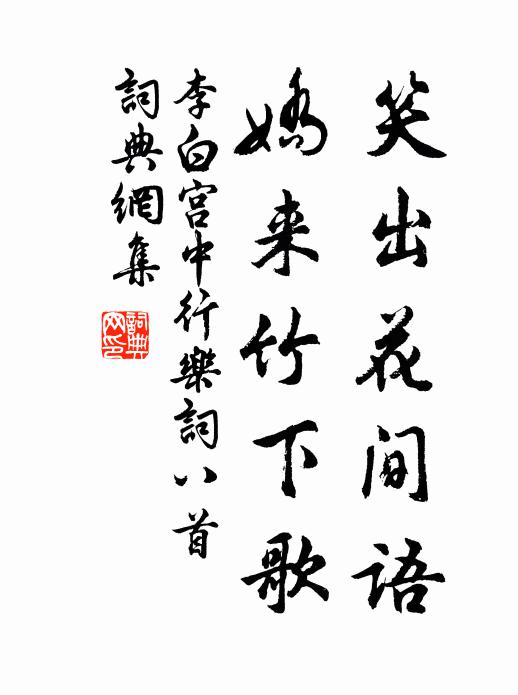 笑出花间语
娇来竹下歌
李白宫中行樂詞八首
詞典網集
詞典网印